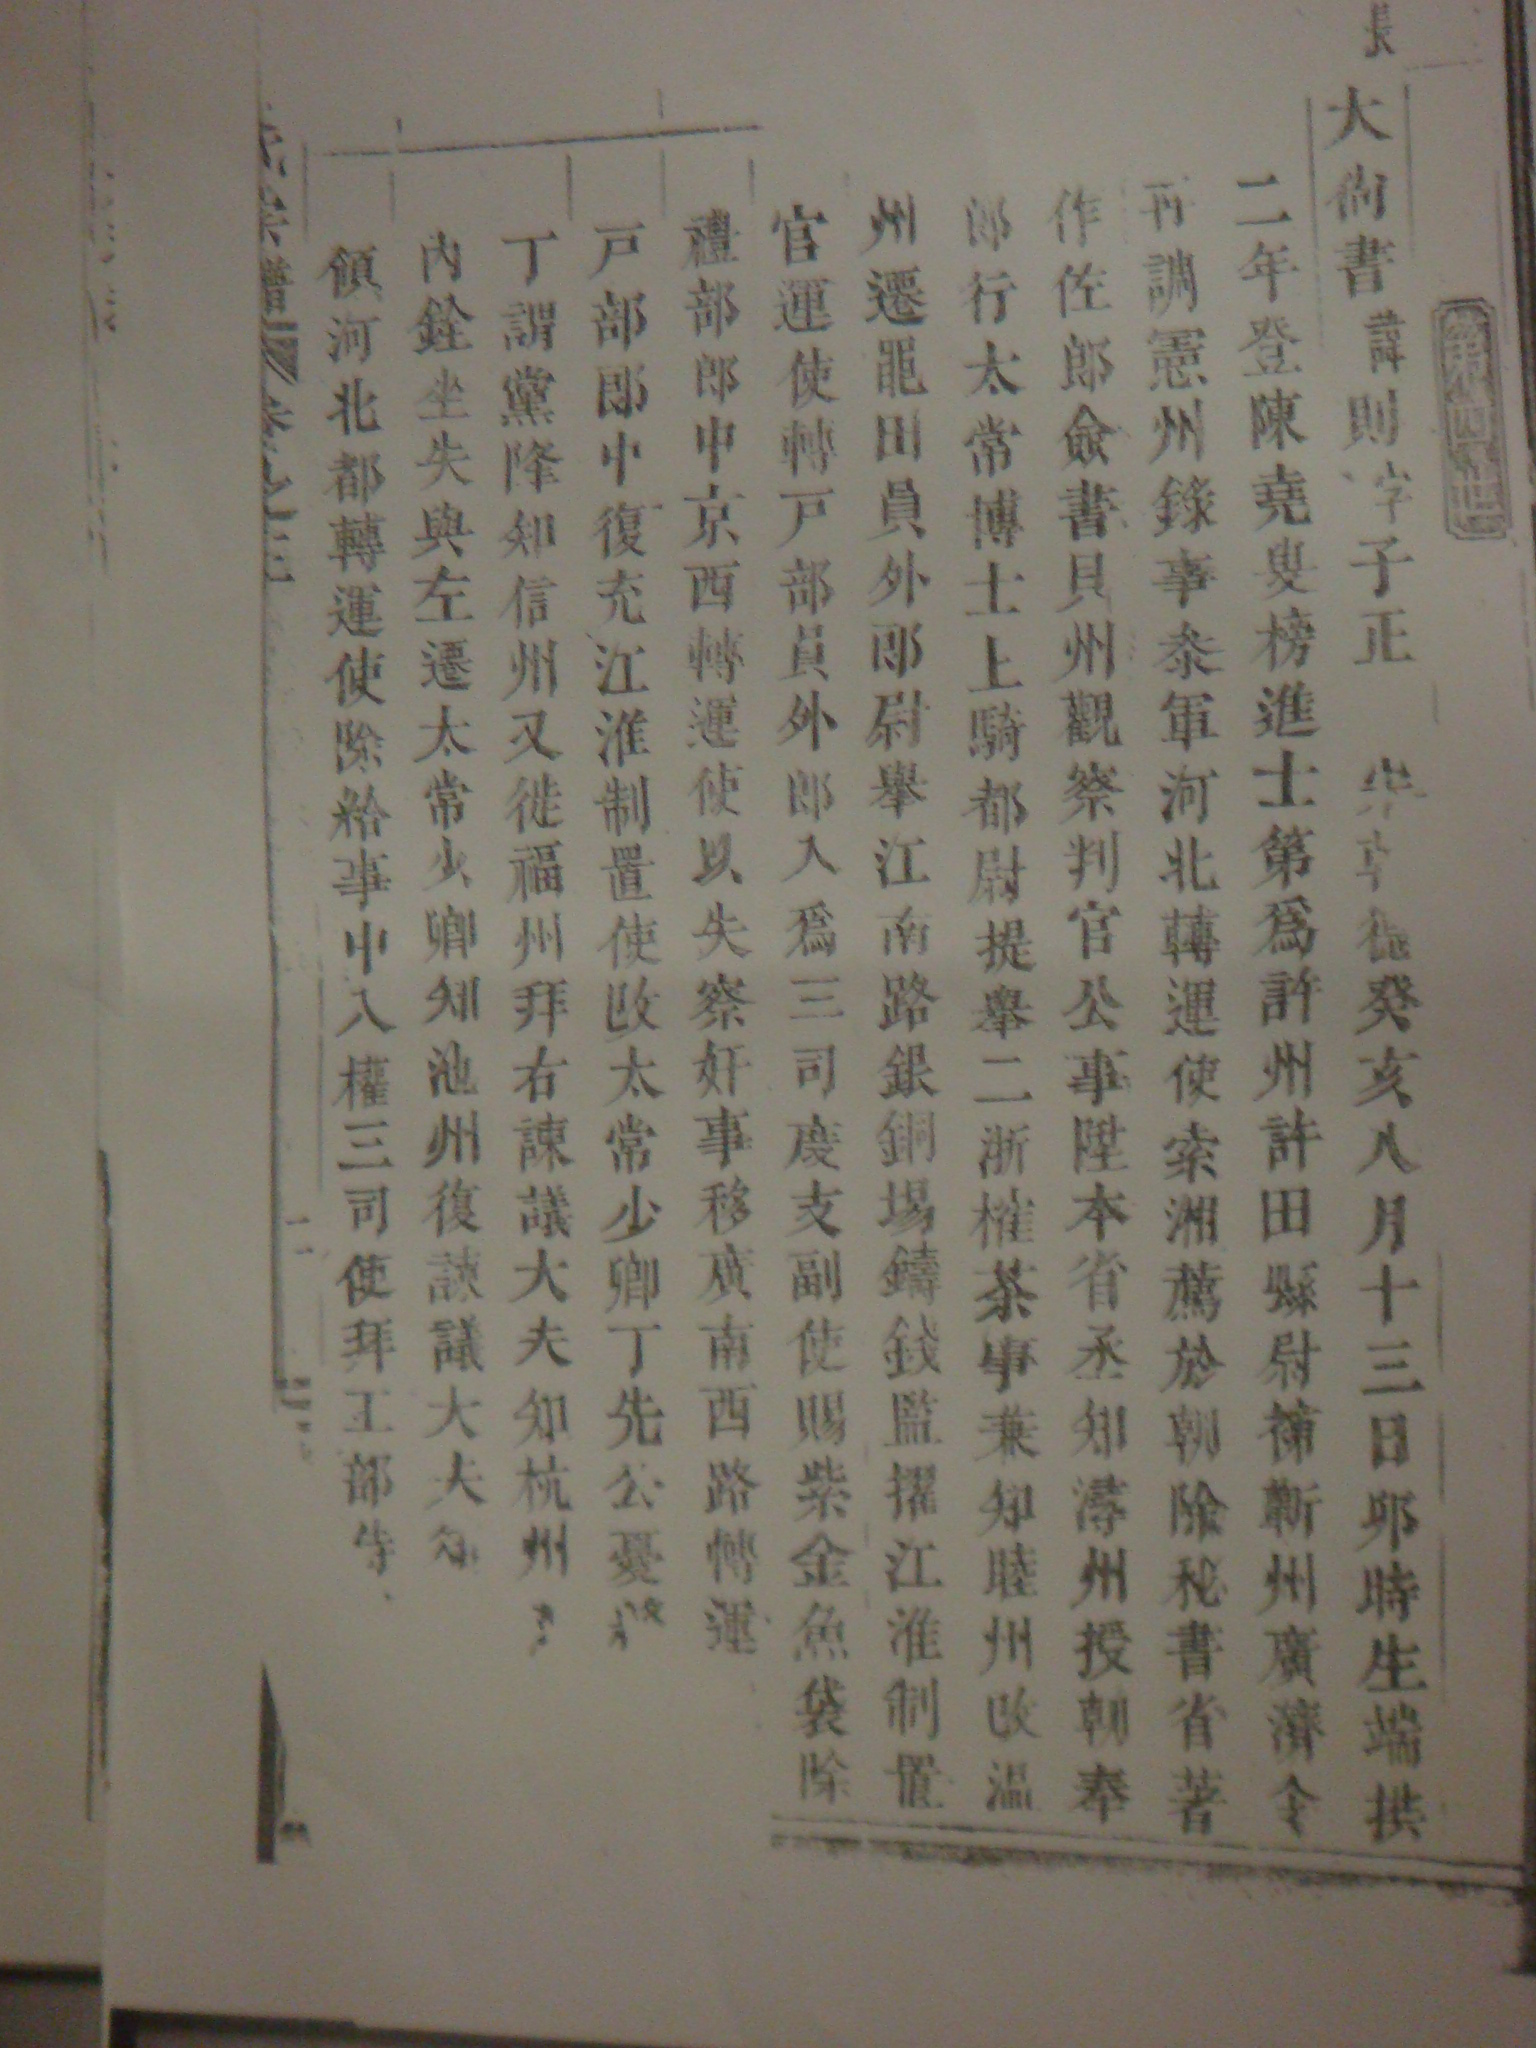 第四世
長
大尚書諱則字子正 癸亥八月十三日卯時生端拱
二年登陳堯叟榜進士第爲許州許田縣尉補蘄州廣濟令
再調憲州錄事叅軍河北轉運使索湘薦於朝除秘書省著
作佐郎僉書貝州觀察判官公事陞本省丞知潯州授朝奉
郎行太常博士上騎都尉提舉二浙榷茶事兼知睦州改溫
州遷屯田員外郎尉舉江南路銀銅場鑄錢監擢江淮制置
官運使轉戸部員外郎入爲三司度支副使賜紫金魚袋除
禮部郎中京西轉運使以失察奸事移廣南西路轉運
戸部郎中復充江淮制置使改太常少卿丁先公憂
丁謂黨降知信州又徙福州拜右諫議大夫知杭州
內銓坐失與左遷太常少卿知池州復諫議大夫
領河北都轉運使除給事中入權三司使拜工部